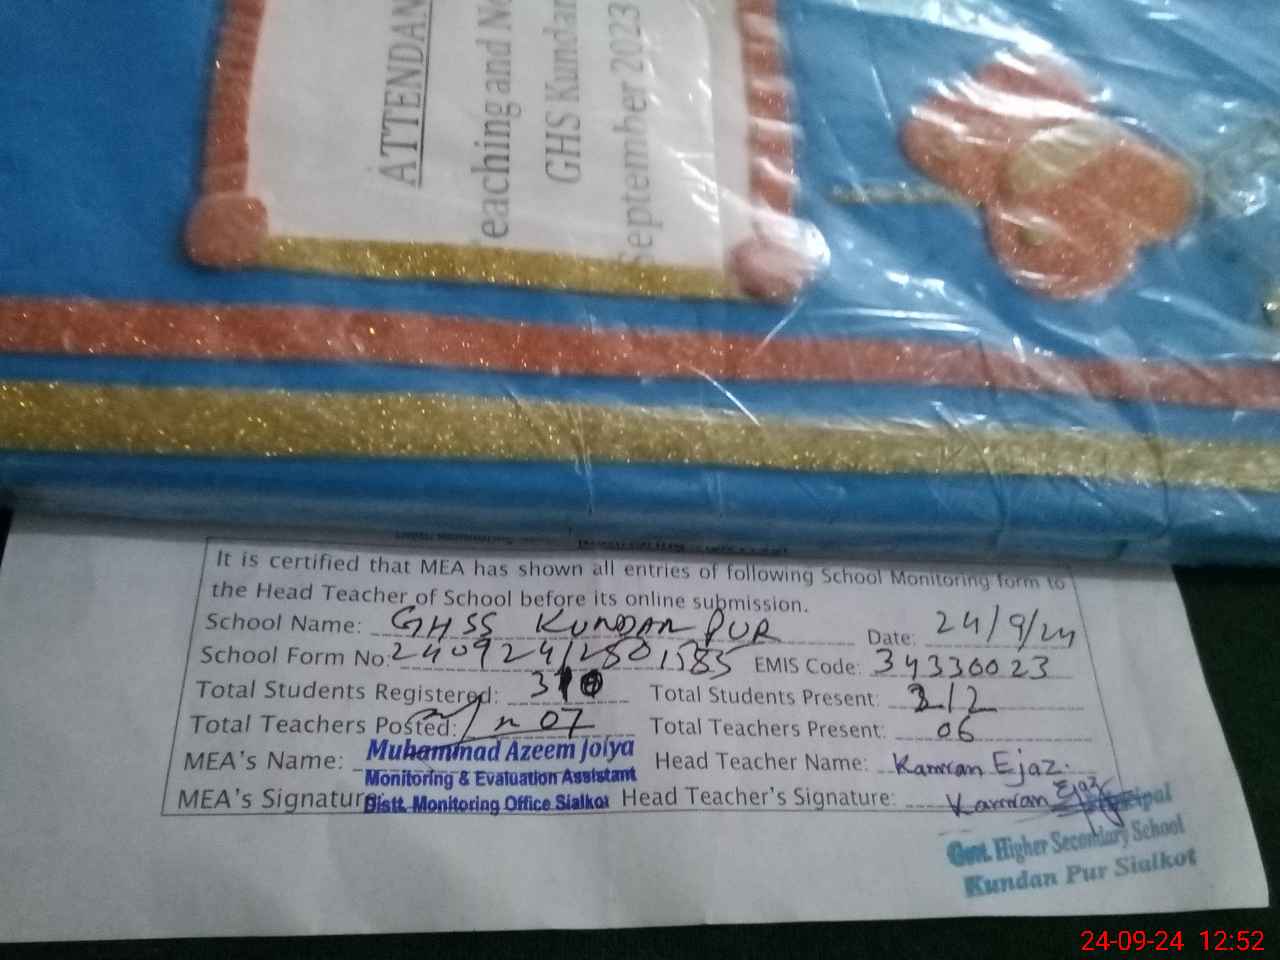 ATTENDAN
eaching and N
GHS Kundan
September 2023
It is certified that MEA has shown all entries of following School Monitoring form to
the Head Teacher of School before its online submission.
School Name: GHSS KUNDAN PUR Date: 24/9/24
School Form No: EMIS Code: 34330023
Total Students Registered: Total Students Present: 212
Total Teachers Posted: 07 Total Teachers Present: 06
MEA's Name: Muhammad Azeem Joiya Head Teacher Name: Kamran Ejaz.
Monitoring & Evaluation Assistant
MEA's Signature Distt. Monitoring Office Sialkot Head Teacher's Signature: Kamran Ejaz
Principal
Govt. Higher Secondary School
Kundan Pur Sialkot
24-09-24 12:52